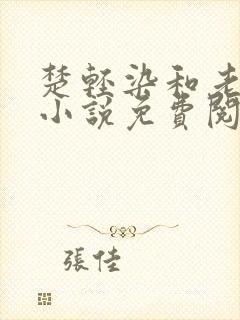 楚轻染和老
小說免費閱
張佳